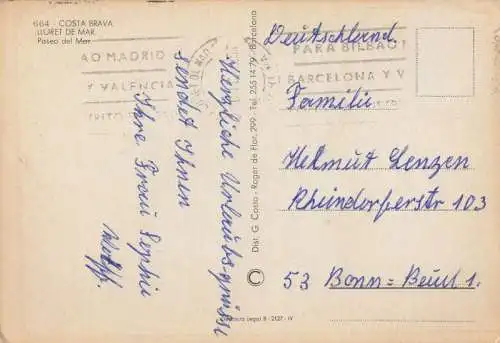 664 - COSTA BRAVA
LLORET DE MAR
Paseo del Mar
AO MADRID
Y VALENCIA
PARA BILBAO
BARCELONA Y V
Herzliche Urlaubsgrüsse
sendet Ihnen
Ihre Frau Sophie
Dist. G. Costa - Roger de Flor, 299 - Tel. 255 14 79 - Barcelona
Deutschland.
Familie
Helmut Lenzen
Rhöndorferstr 103
53 Bonn=Beuel 1.
Legal B - 2127 - IV